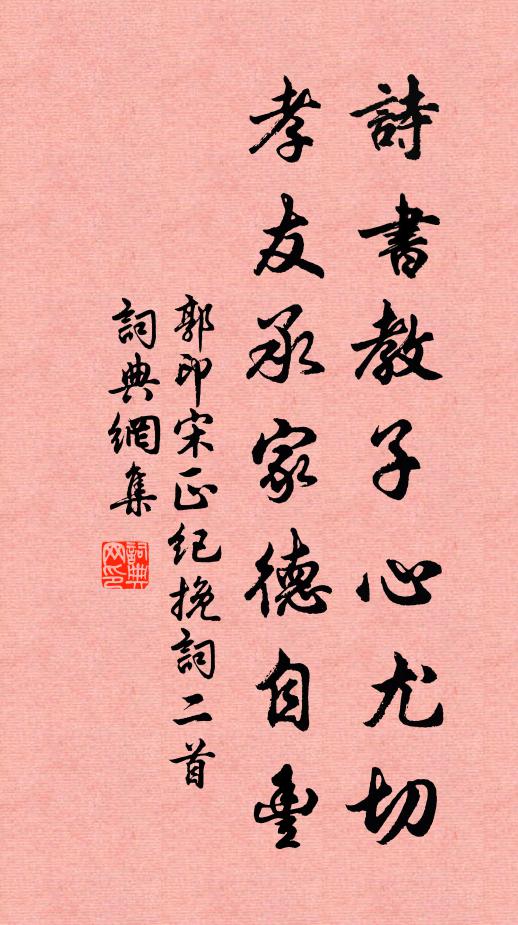 詩書教子心尤切
孝友承家德自豐
郭印宋正紀挽詞二首
詞典網集
詞典網印